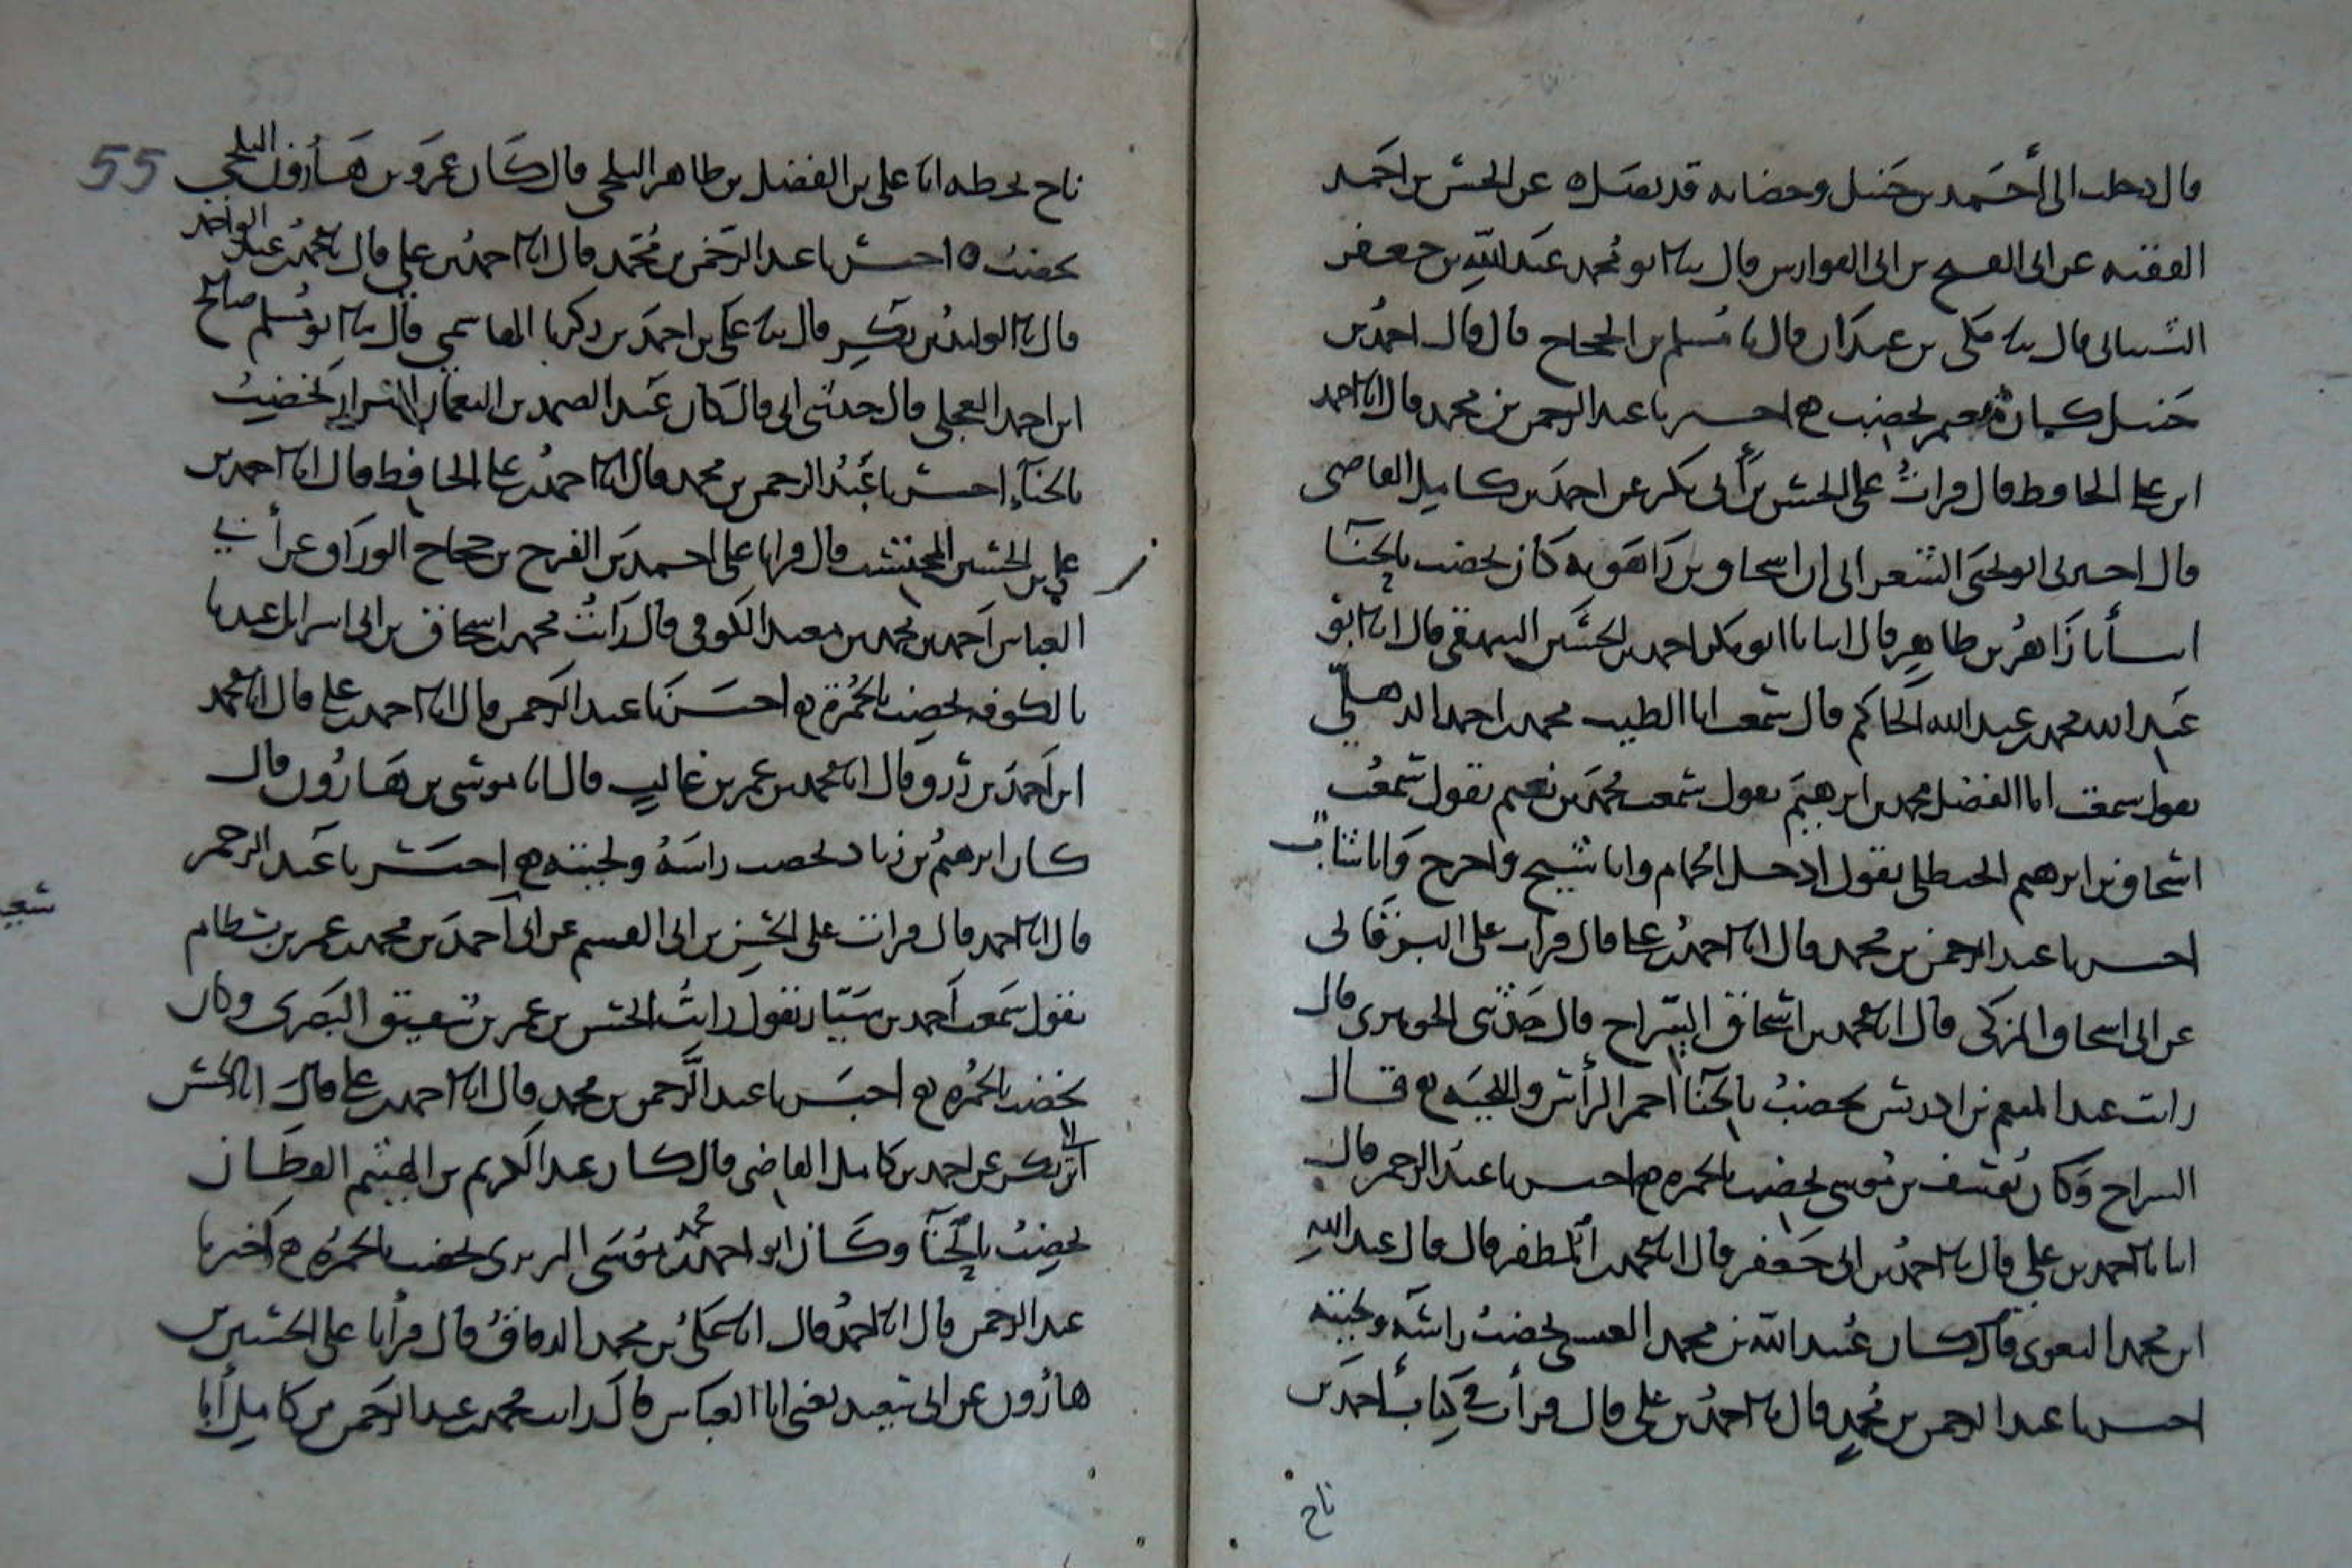 قال دخلت الى أحمد بن حنبل وخضابه قد نصل ه عن الحسن بن احمد
الفقيه عن ابى الفتح بن ابى الفوارس قال ثنا ابو محمد عبد الله بن جعفر
قال ثنا مكى بن عبدان قال نا مسلم بن الحجاج قال قال احمد بن
حنبل كان معمر يخضب اخبرنا عبد الرحمن بن محمد قال انا احمد
ابن على الحافظ قال قرات على الحسن بن أبى بكر عن احمد بن كامل القاضى
قال اخبرنى ابو يحيى الشعرانى ان اسحاق بن راهويه كان يخضب بالحنا
انبأنا زاهر بن طاهر قال انبانا ابو بكر احمد بن الحسين البيهقى قال انا ابو
عبد الله محمد بن عبد الله الحاكم قال سمعت ابا الطيب محمد بن احمد الذهلى
يقول سمعت ابا الفضل محمد بن ابرهيم يقول سمعت محمد بن نعيم يقول سمعت
اسحاق بن ابرهيم الحنظلى يقول ادخل الحمام وانا شيخ واخرج وانا شاب
اخبرنا عبد الرحمن بن محمد قال انا احمد بن على قال قرات على البرقانى
عن ابى اسحاق المزكى قال انا محمد بن اسحاق السراج قال حدثنى الجوهرى قال
رايت عبد المنعم بن ادريس يخضب بالحنا احمر الرأس واللحيه قال
السراج وكان يوسف بن موسى يخضب بالحمره اخبرنا عبد الرحمن قال
انا احمد بن على قال انا احمد بن ابى جعفر قال انا محمد بن المظفر قال قال عبد الله
ابن محمد البغوى قال كان عبيد الله بن محمد العيشى يخضب راسه ولحيته
اخبرنا عبد الرحمن بن محمد قال انا احمد بن على قال قرأت فى كتاب احمد بن
تاج
55
تاج بخطه انا على بن الفضل بن طاهر البلخى قال كان عمرو بن هارون البلخى
يخضب ه اخبرنا عبد الرحمن بن محمد قال انا احمد بن على قال انا محمد بن عبد الواحد
قال نا الوليد بن بكر قال ثنا على بن احمد بن زكريا الهاشمى قال ثنا ابو مسلم صالح
ابن احمد العجلى قال حدثنى ابى قال كان عبد الصمد بن النعمان البزاز يخضب
بالحنآء اخبرنا عبد الرحمن بن محمد قال انا احمد بن على الحافظ قال انا احمد بن
على بن الحسين قال قرانا على احمد بن الفرج بن حجاج الوراق عن أبي
العباس احمد بن محمد بن سعيد الكوفى قال رأيت محمد بن اسحاق بن ابى اسرايل عندنا
بالكوفه يخضب بالحمرة اخبرنا عبد الرحمن قال انا احمد بن على قال انا محمد
ابن احمد بن رزق قال انا محمد بن عمر بن غالب قال انا موسى بن هارون قال
كان ابرهيم بن زياد يخضب راسه ولحيته اخبرنا عبد الرحمن
قال انا احمد قال قرات على الحسن بن ابى القسم عن ابى احمد بن محمد بن عمر بن بسطام
يقول سمعت احمد بن سيار يقول رايت الحسن بن عمر بن شقيق البصرى وكان
يخضب بالحمره اخبرنا عبد الرحمن بن محمد قال انا احمد بن على قال انا الحسن
ابن بكر عن احمد بن كامل القاضى قال كان عبد الكريم بن الهيثم القطان
يخضب بالحنآ وكان ابو احمد محمد بن موسى البربرى يخضب بالحمره اخبرنا
عبد الرحمن قال انا احمد قال انا على بن محمد الدقاق قال قرأنا على الحسين بن
هارون عن ابن سعيد يعنى ابا العباس قال رايت محمد بن عبد الرحمن بن كامل أبا